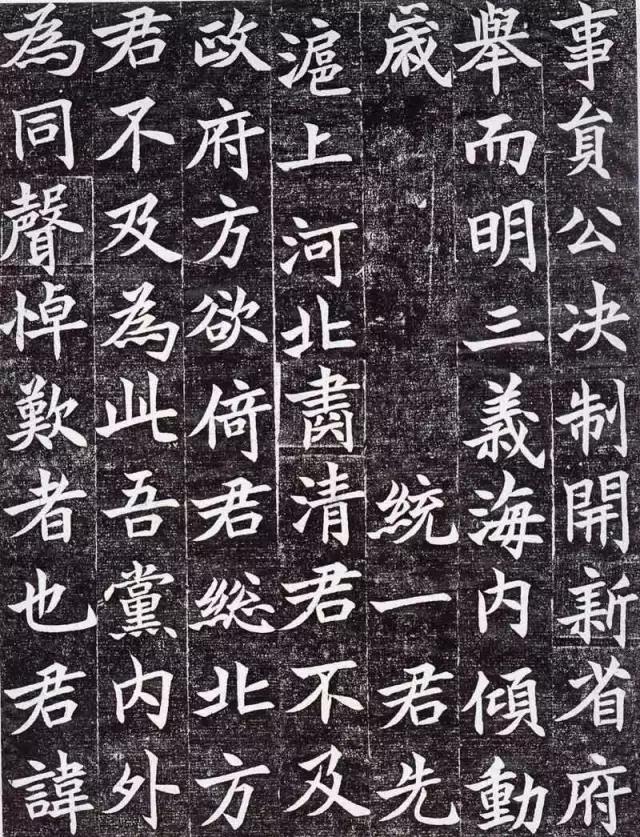 事負公决制開新省府
舉而明三義海内傾動
嵗統一君先
滬上河北肅清君不及
政府方欲倚君総北方
君不及為此吾黨内外
為同聲悼歎者也君諱